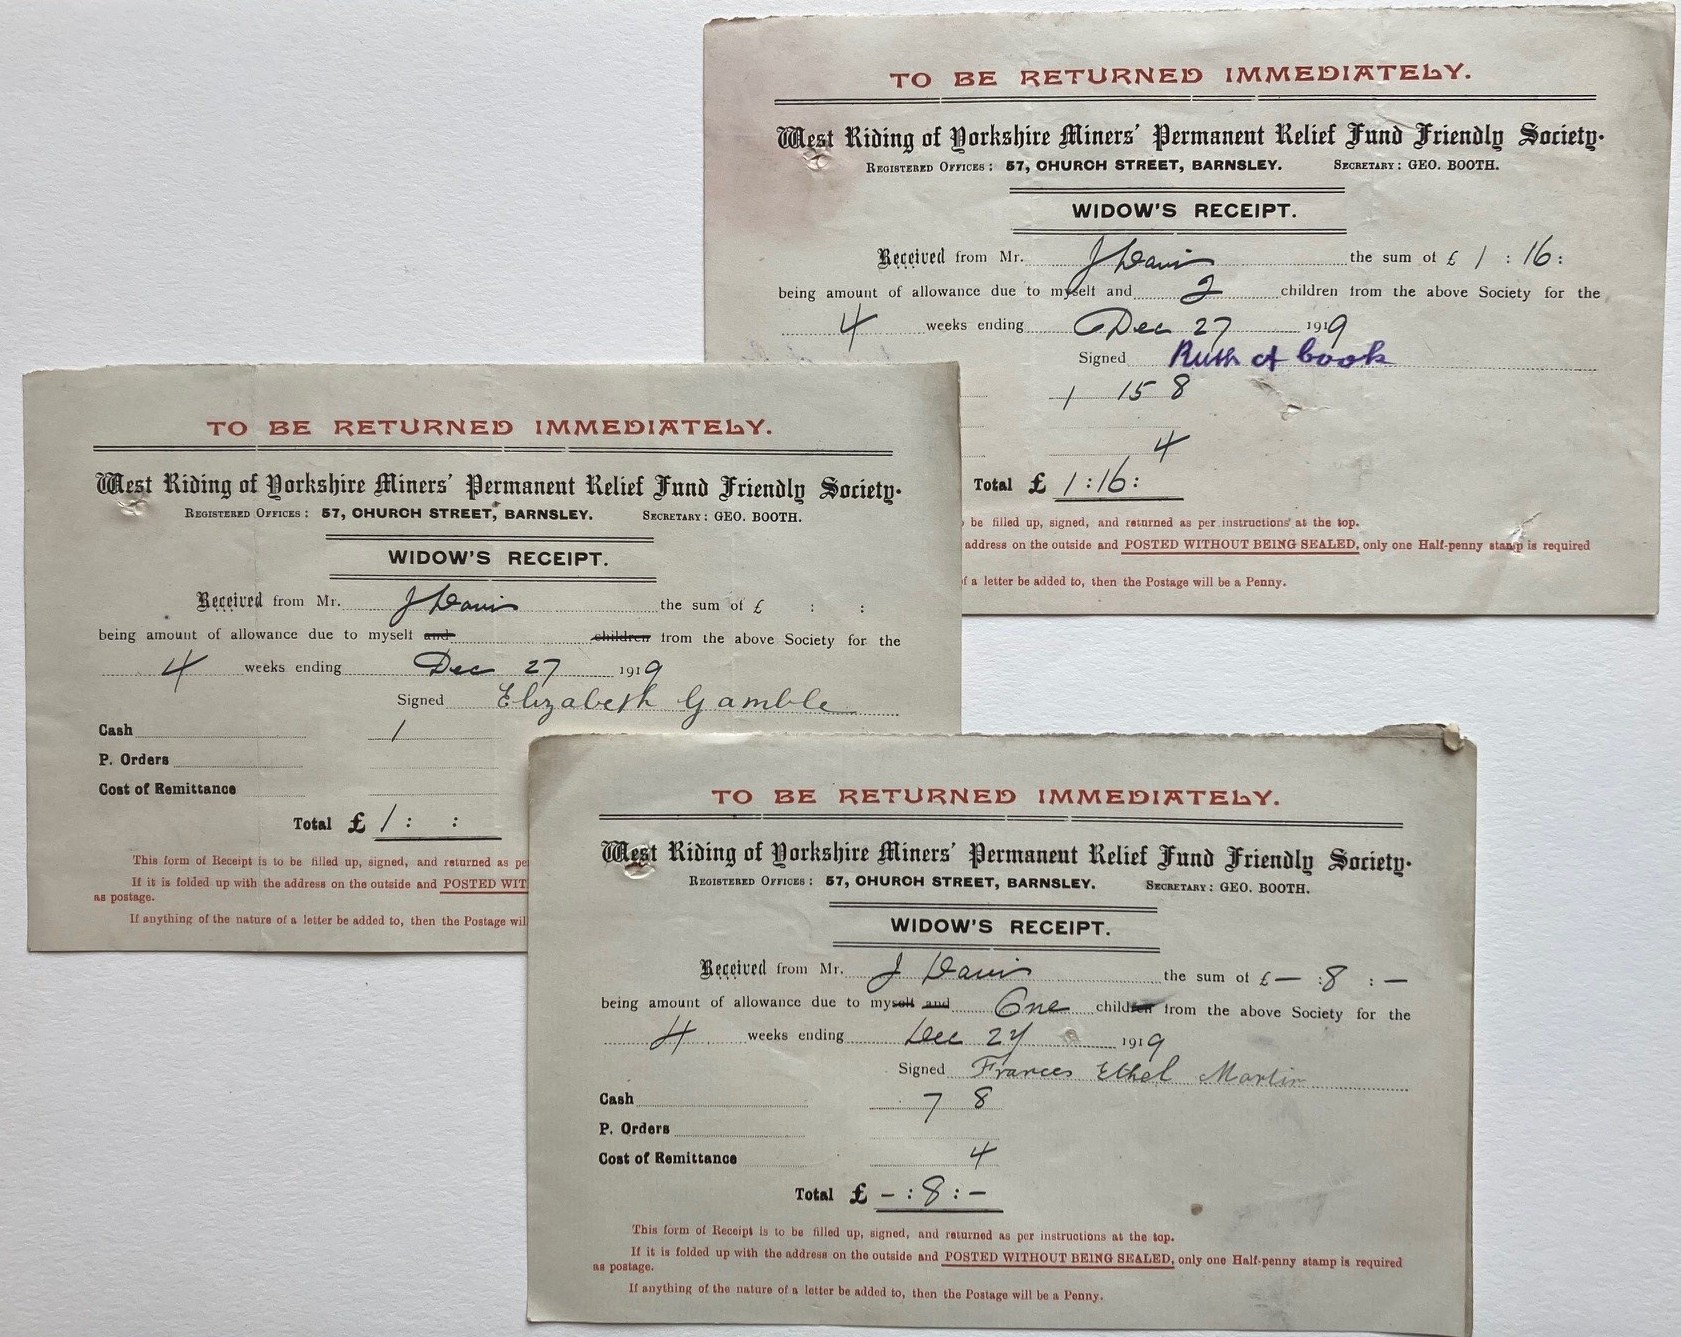 TO BE RETURNED IMMEDIATELY.
West Riding of Yorkshire Miners' Permanent Relief Fund Friendly Society.
REGISTERED OFFICES: 57, CHURCH STREET, BARNSLEY. SECRETARY: GEO. BOOTH.
WIDOW'S RECEIPT.
Received from Mr. J Davis the sum of £ 1 : 16 :
being amount of allowance due to myself and 2 children from the above Society for the
4 weeks ending Dec 27 1919
Signed Ruth A Cook
1 15 8
4
Total £ 1 : 16 :
be filled up, signed, and returned as per instructions at the top.
address on the outside and POSTED WITHOUT BEING SEALED, only one Half-penny stamp is required
of a letter be added to, then the Postage will be a Penny.
TO BE RETURNED IMMEDIATELY.
West Riding of Yorkshire Miners' Permanent Relief Fund Friendly Society.
REGISTERED OFFICES: 57, CHURCH STREET, BARNSLEY. SECRETARY: GEO. BOOTH.
WIDOW'S RECEIPT.
Received from Mr. J Davis the sum of £ : :
being amount of allowance due to myself and children from the above Society for the
4 weeks ending Dec 27 1919
Signed Elizabeth Gamble
Cash 1
P. Orders
Cost of Remittance
Total £ 1 : :
This form of Receipt is to be filled up, signed, and returned as pe
If it is folded up with the address on the outside and POSTED WIT
as postage.
If anything of the nature of a letter be added to, then the Postage wil
TO BE RETURNED IMMEDIATELY.
West Riding of Yorkshire Miners' Permanent Relief Fund Friendly Society.
REGISTERED OFFICES: 57, CHURCH STREET, BARNSLEY. SECRETARY: GEO. BOOTH.
WIDOW'S RECEIPT.
Received from Mr. J Davis the sum of £ — : 8 : —
being amount of allowance due to myself and One children from the above Society for the
4 weeks ending Dec 27 1919
Signed Frances Ethel Martin
Cash 7 8
P. Orders
Cost of Remittance 4
Total £ — : 8 : —
This form of Receipt is to be filled up, signed, and returned as per instructions at the top.
If it is folded up with the address on the outside and POSTED WITHOUT BEING SEALED, only one Half-penny stamp is required
as postage.
If anything of the nature of a letter be added to, then the Postage will be a Penny.